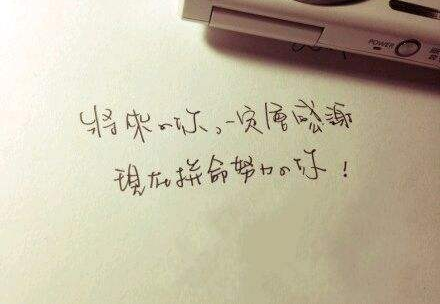 POWER
將來の你,一定會感謝
現在拼命努力の你!